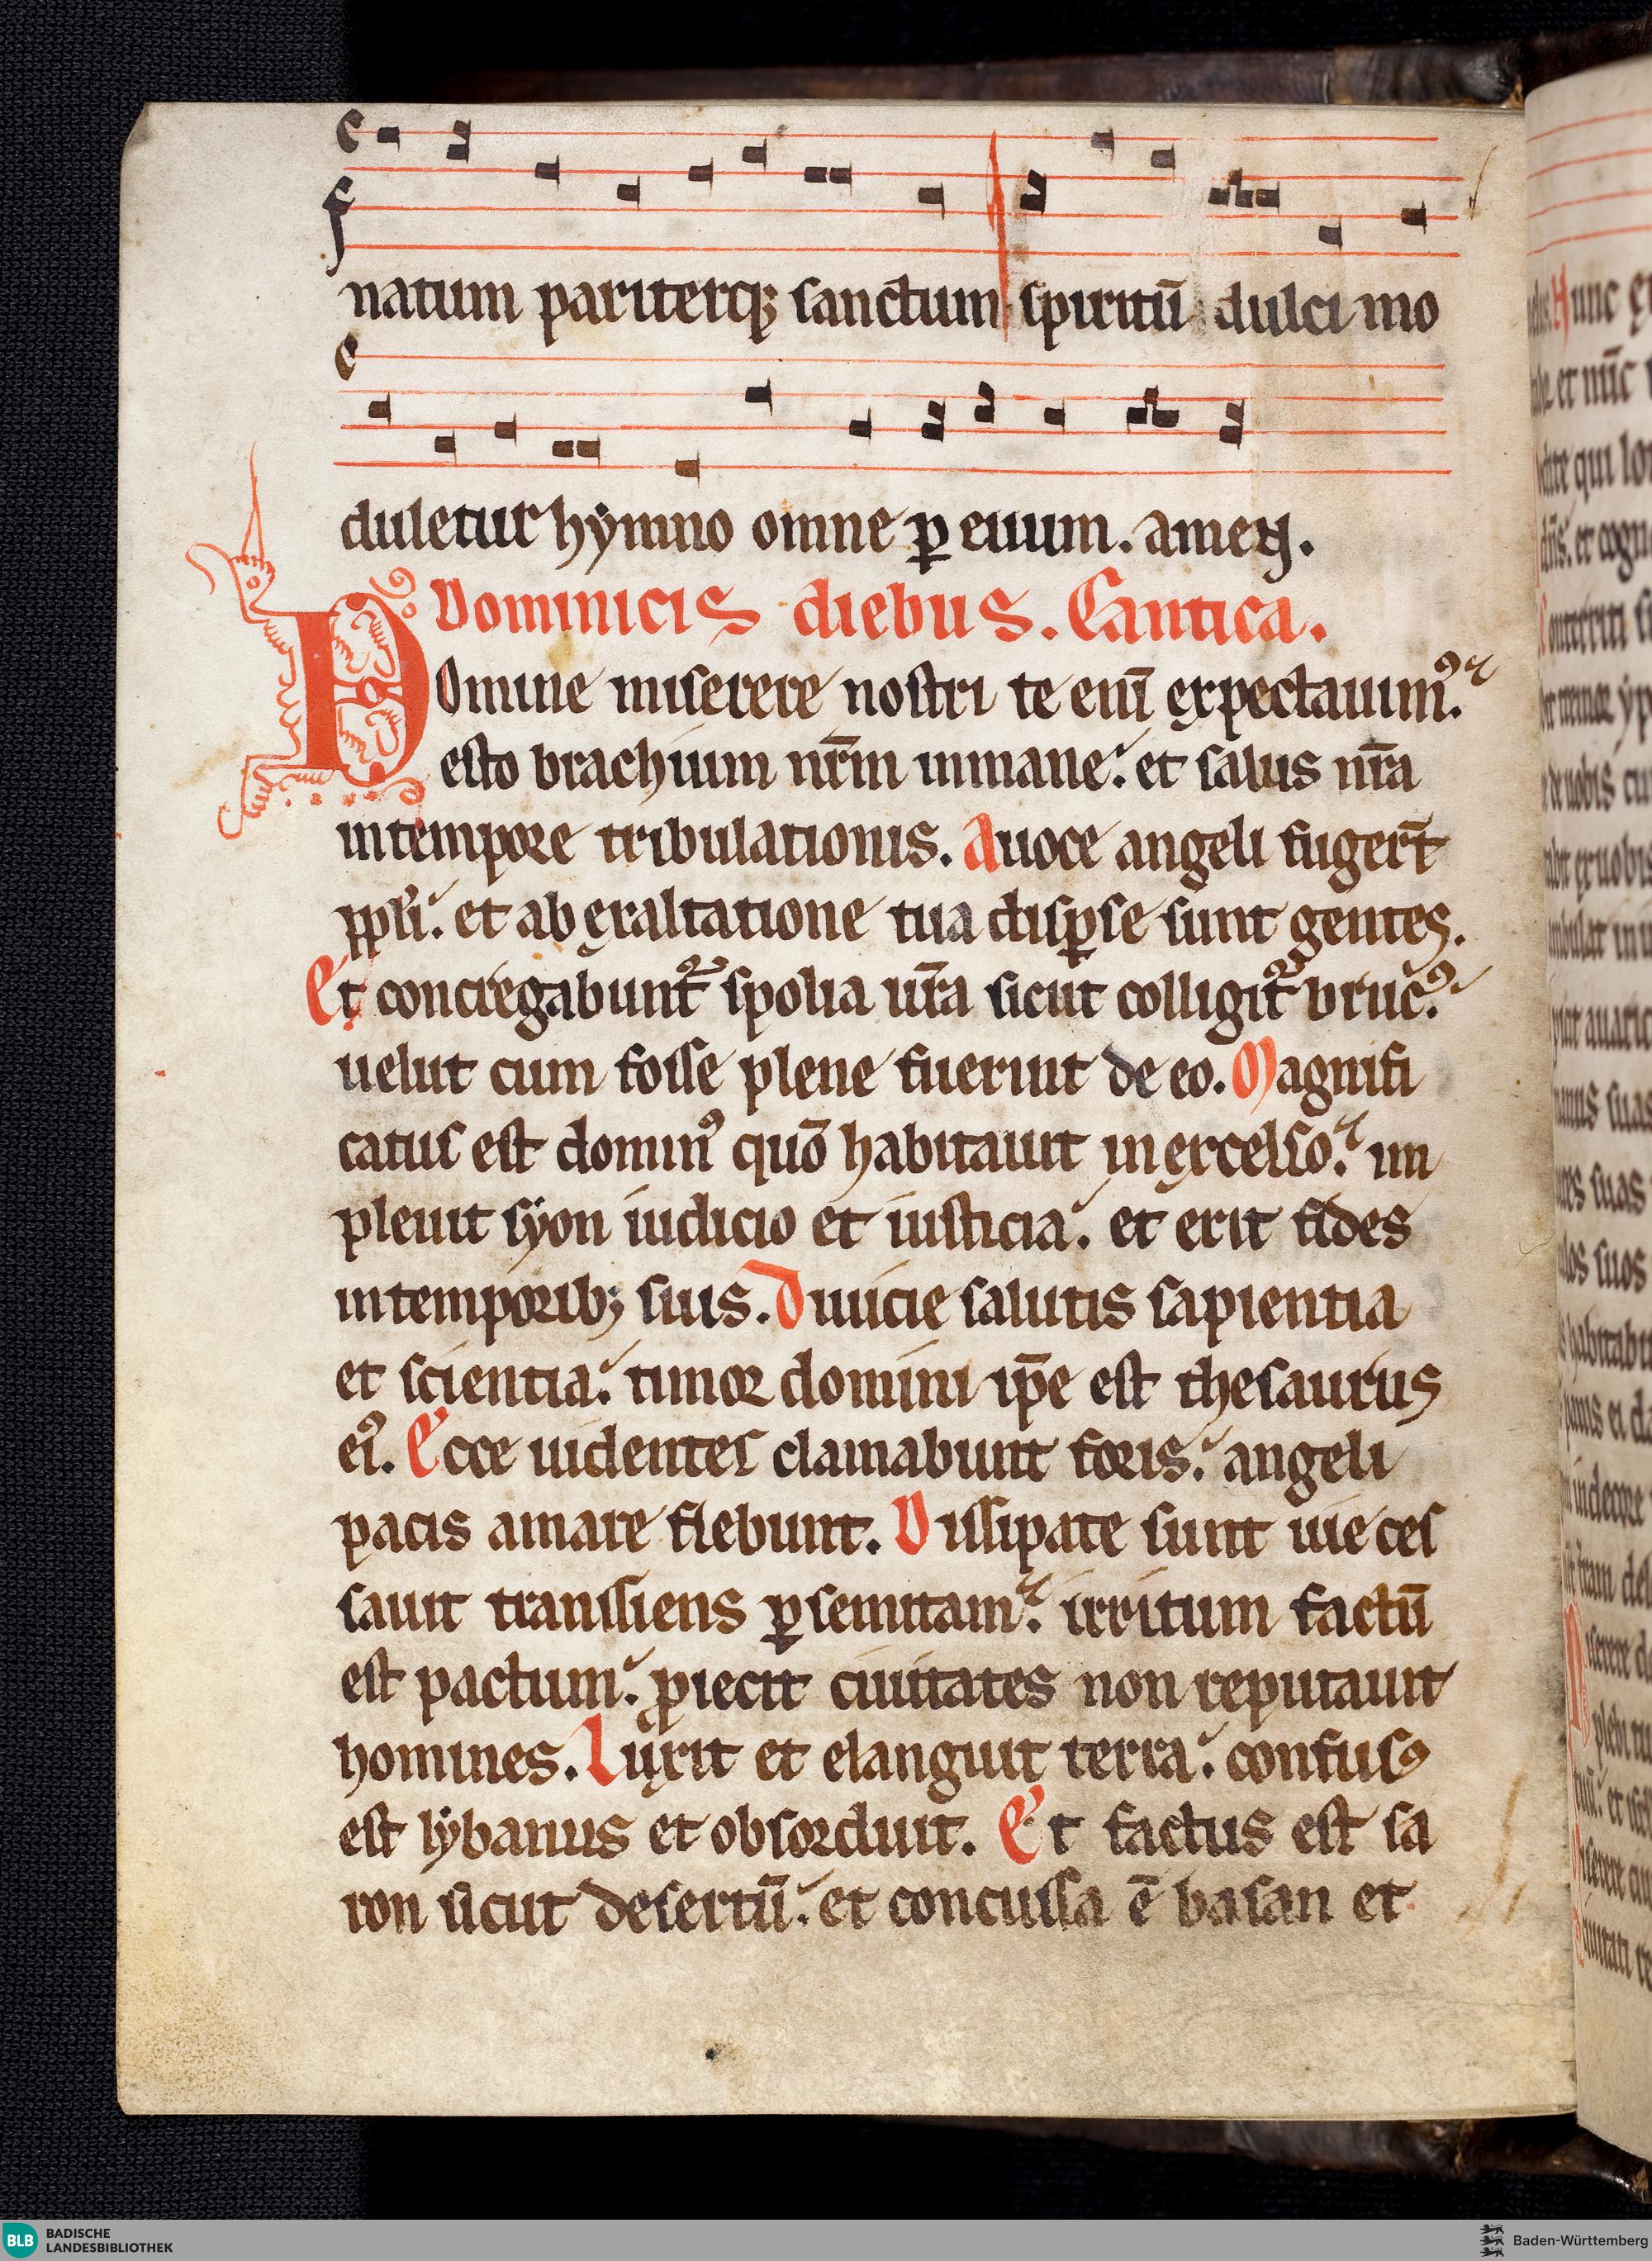 natum pariterq; sanctum spiritū dulci mo
duletur hẏmno omne ꝑ euum. amen.
Dominicis diebus. Cantica.
Domine miserere nostri te eni̅ expectauimꝰ.
esto brachium nr̅m inmane. et salus nr̅a
intempore tribulationis. Auoce angeli fuger̅t
ppl̓i. et ab exaltatione tua disꝑse sunt gentes.
Et congregabunt᷑ spolia ur̅a sicut colligit᷑ brucꝰ.
uelut cum fosse plene fuerint de eo. Magnifi
catus est dominꝰ quo̅ habitauit in excelso. im
pleuit sẏon iudicio et iusticia. et erit fides
intemporib; suis. Diuicie salutis sapientia
et scientia. timor domini ip̅e est thesaurus
eiꝰ. Ecce uidentes clamabunt foris. angeli
pacis amare flebunt. Dissipate sunt uie ces
sauit transsiens ꝑ semitam. irritum factū
est pactum. ꝓiecit ciuitates non reputauit
homines. Luxit et elanguit terra. confusꝰ
est lẏbanus et obsorduit. Et factus est sa
ron sicut desertū. et concussa ē basan et
BLB BADISCHE
LANDESBIBLIOTHEK
Baden-Württemberg